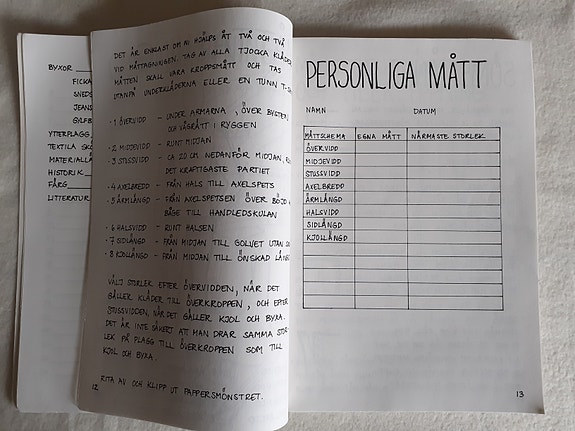 BYXOR
FICKA
SNEDS
JEANS
GYLF
YTTERPLAGG,
TEXTILA SK
MATERIALL
HISTORIK
FÄRG
LITTERATUR
DET ÄR ENKLAST OM NI HJÄLPS ÅT TVÅ OCH TVÅ
VID MÅTTAGNINGEN. TAG AV ALLA TJOCKA KLÄDE
MÅTTEN SKALL VARA KROPPSMÅTT OCH TAS
UTANPÅ UNDERKLÄDERNA ELLER EN TUNN T-S
· 1 ÖVERVIDD - UNDER ARMARNA, ÖVER BYSTEN
OCH VÅGRÄTT I RYGGEN
· 2 MIDJEVIDD - RUNT MIDJAN
· 3 STUSSVIDD - CA 20 CM NEDANFÖR MIDJAN, RU
DET KRAFTIGASTE PARTIET
· 4 AXELBREDD - FRÅN HALS TILL AXELSPETS
· 5 ÄRMLÄNGD - FRÅN AXELSPETSEN ÖVER BÖJD A
BÅGE TILL HANDLEDSKULAN
· 6 HALSVIDD - RUNT HALSEN
· 7 SIDLÄNGD - FRÅN MIDJAN TILL GOLVET UTAN S
· 8 KJOLLÄNGD - FRÅN MIDJAN TILL ÖNSKAD LÄNG
VÄLJ STORLEK EFTER ÖVERVIDDEN, NÄR DET
GÄLLER KLÄDER TILL ÖVERKROPPEN, OCH EFTER
STUSSVIDDEN, NÄR DET GÄLLER KJOL OCH BYXA.
DET ÄR INTE SÄKERT ATT MAN DRAR SAMMA STOR
LEK PÅ PLAGG TILL ÖVERKROPPEN SOM TILL
KJOL OCH BYXA.
RITA AV OCH KLIPP UT PAPPERSMÖNSTRET.
12
PERSONLIGA MÅTT
NAMN DATUM
MÅTTSCHEMA EGNA MÅTT NÄRMASTE STORLEK
ÖVERVIDD
MIDJEVIDD
STUSSVIDD
AXELBREDD
ÄRMLÄNGD
HALSVIDD
SIDLÄNGD
KJOLLÄNGD
13